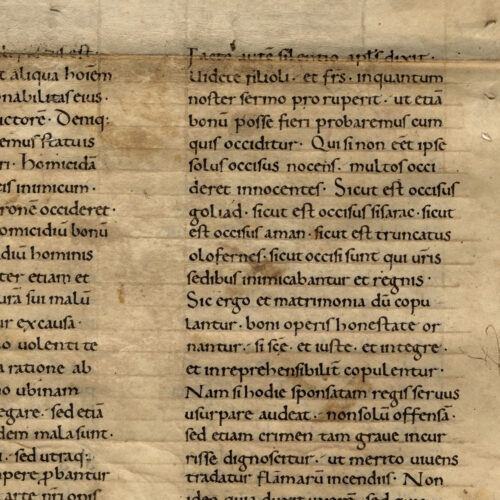 t aliqua hoiem
nabilitas eius ·
ictorē · Deniq;
emus statuis
ri · Homicidā
is inimicum ·
ronē occideret ·
omicidiū bonū
diū hominis
ter etiam et
urā sui malū
ur ex causa ·
o volenti te
a ratione ab
o ubinam
egare · sed etiā
dem mala sunt ·
i · sed utraq;
mpere ꝓbantur
Facto autē silentio apls dixit ·
Videte filioli · et frs · inquantum
noster sermo pro ruperit · ut etiā
bonū posse fieri probaremus eum
quis occiditur · Qui si non eēt ipse
solus occisus nocens · multos occi
deret innocentes · Sicut est occisus
goliad · sicut est occisus sisarac · sicut
est occisus aman · sicut est truncatus
olofernes · sicut occisi sunt qui uris
sedibus inimicabantur et regnis ·
Sic ergo et matrimonia dū copu
lantur · boni operis honestate or
nantur · si sce · et iuste · et integre ·
et inreprehensibilit copulentur ·
Nam si hodie sponsatam regis seruus
usurpare audeat · non solū offensā ·
sed etiam crimen tam graue incur
risse dignoscitur · ut merito uiuens
tradatur flāmarū incendiis · Non